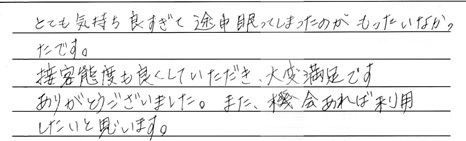 とても気持ち良すぎて途中眠ってしまったのがもったいなかっ
たです。
接客態度も良くしていただき、大変満足です
ありがとうございました。また、機会あれば利用
したいと思います。